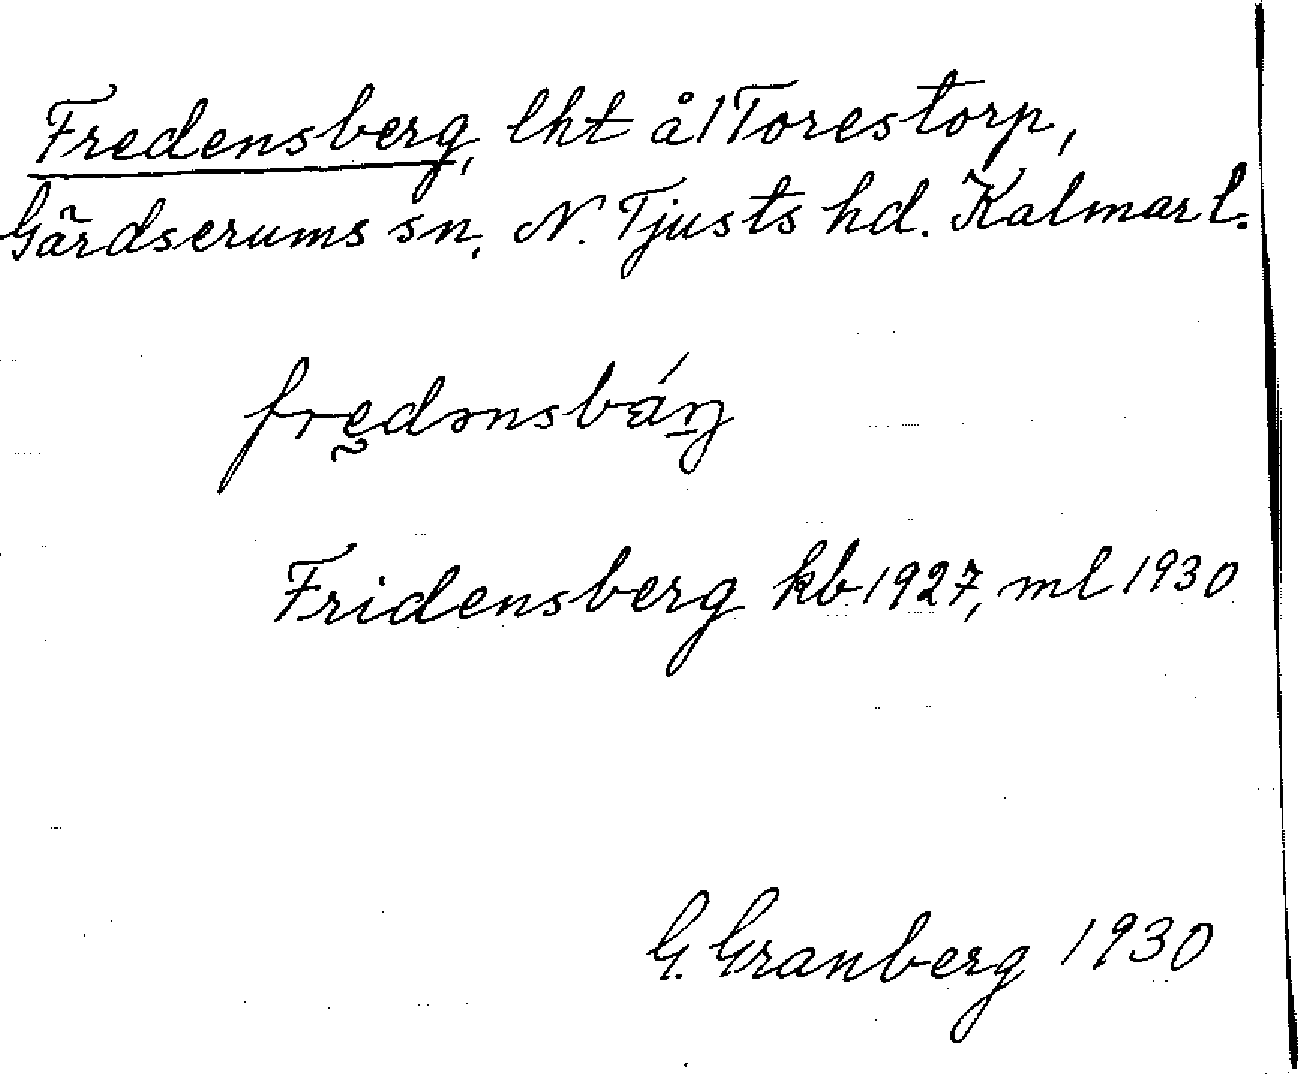 Fredensberg, lht å 1 Torestorp,
Gärdserums sn, N. Tjusts hd. Kalmar l.
fredənsbárŋ
Fridensberg kb 1927, ml 1930
G. Granberg 1930